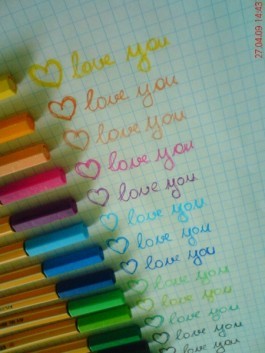 27.04.09 14:43
love you
love you
love you
love you
love you
love you
love you
love you
love you
love you
love you
love you
love you